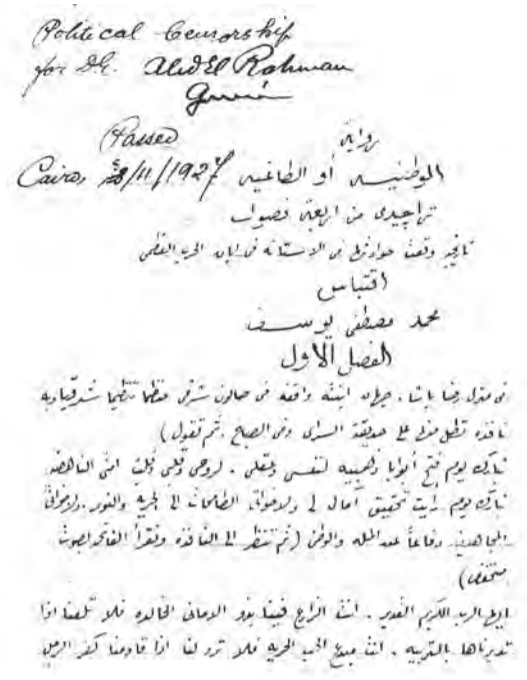 Political Censorship
for D.G. Abd El Rahman
Passed
Cairo, 28/11/1927
رواية
الوطنيه أو الطاغيه
تراچيدى من اربعة فصول
تاريخيه وقعت حوادثها فى الاستانة فى ابان الحرب العظمى
اقتباس
محمد مصطفى يوسف
الفصل الاول
فى منزل رضا باشا . جيهان ابنته واقفة فى صالون شرقى منظم تنظيما
نافذه تطل منها على حديقة السراى وقت الصباح . ثم تقول )
تبارك يوم فتح أبوابا ذهبيه لنفسى وعقلى . لروحى وقلبى
تبارك يوم رأيت تحقيق آمال لى ولاخواتى الطامحات الى الحرية والنور . ولاخوانى
المجاهدين دفاعا عن الملة والوطن ( ثم تنظر الى النافذه وتقرأ الفاتحه بصوت
منخفض )
ايها الرب الكريم القدير . انت الزارع فينا بذور الامانى الخالده فلا اذا
بالتربيه . انت مبدع الحب الحريه فلا لنا اذا